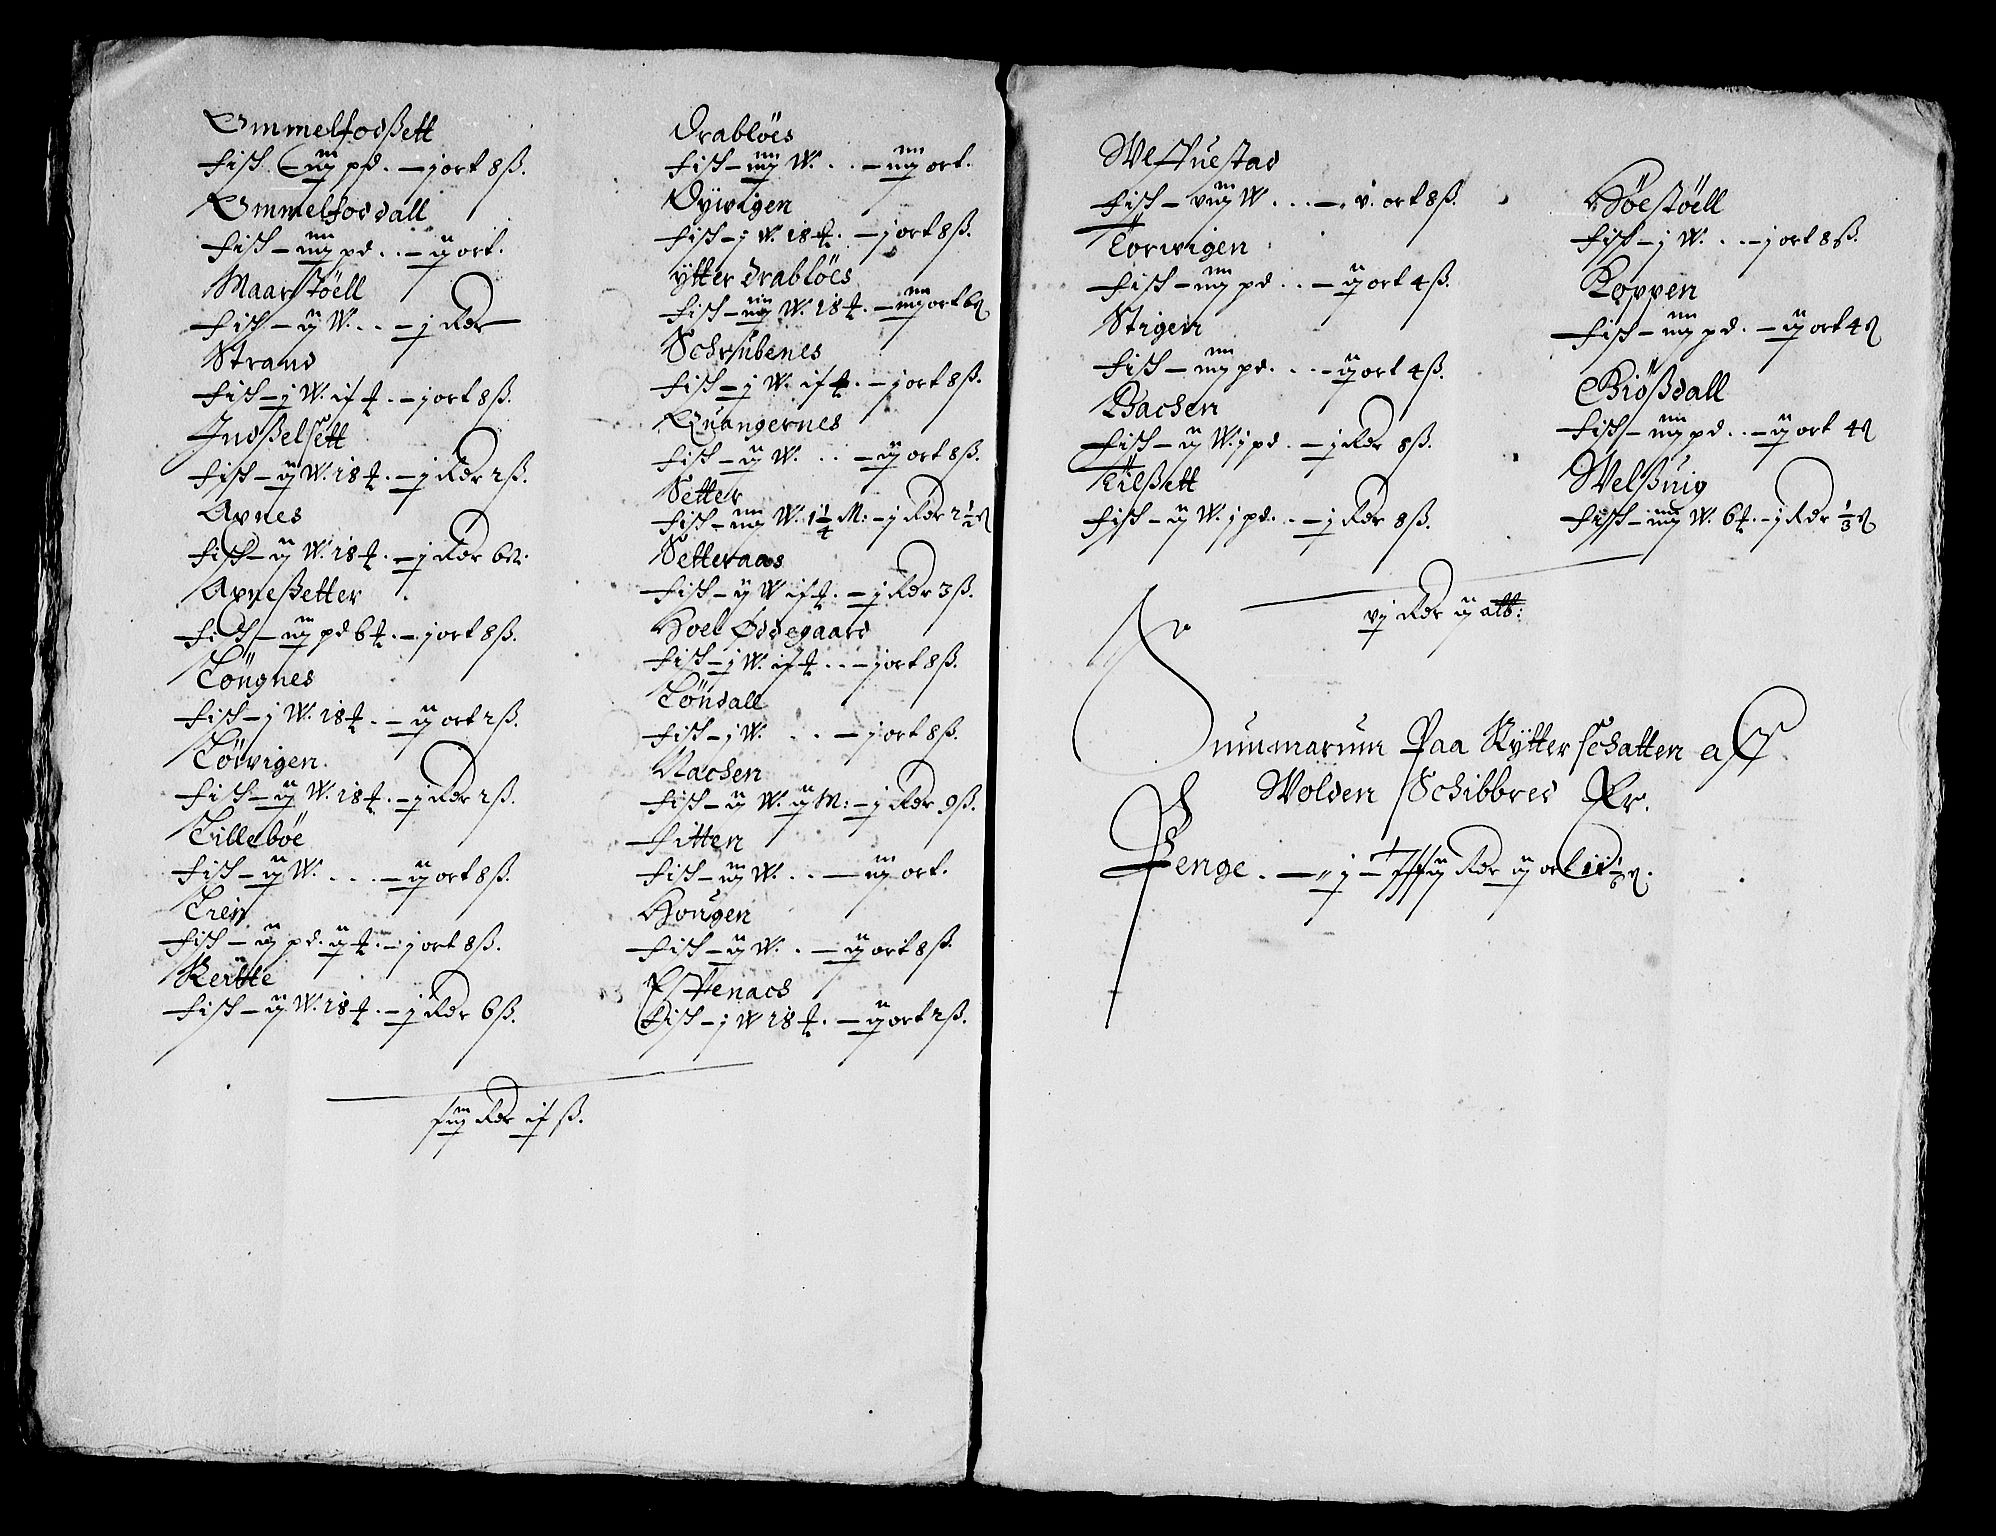 Ommelfodßett
Fisk - iij pd. - j ort 8 ß.
Ommelfoddall
Fisk - iiij pd. - ij ort.
Maarstöell
Fisk - ij W. - j Rdr
Strand
Fisk - j W. if - j ort 8 ß.
Indßelsett
Fisk - ij W. 18 - j Rdr 2 ß.
Apnes
Fisk - ij W. 18 - j Rdr 6
Apneßetter
Fisk - iij pd 6 - j ort 8 ß.
Töngnes
Fisk - j W. 18 - ij ort 2 ß.
Törvigen.
Fisk - ij W. 18 - j Rdr 2 ß.
Lilleböe
Fisk - ij W. - ij ort 8 ß.
Lien
Fisk - ij pd. ij - j ort 8 ß.
Reitte
Fisk - ij W. 18 - j Rdr 6 ß.
Drablöes
Fisk - iiij W. - iiij ort.
Dywigen
Fisk - j W. 18 - j ort 8 ß.
ytter drablöes
Fisk - iiij W. 18 - iiij ort 6
Schrubenes
Fisk - j W. if - j ort 8 ß.
Quangernes
Fisk - ij W. - ij ort 8 ß.
Setter
Fisk - iiij W. 1 1/4 M: - j Rdr 2 1/2
Setteraas
Fisk - ij W if - j Rdr 3 ß.
Hoel Ødegaard
Fisk - j W. if - j ort 8 ß.
Töndall
Fisk - j W. - j ort 8 ß.
Nachen
Fisk - ij W. ij M: - j Rdr 9 ß.
Fitten
Fisk - iij W. - iij ort.
Hougen
Fisk - ij W. - ij ort 8 ß.
Espenacs
Fisk - j W 18 - ij ort 2 ß.
Rdr if ß.
Westuestad
Fisk - viij W - v. ort 8 ß.
Torwigen
Fisk - iiij pd - ij ort 4 ß.
Stigen
Fisk - iiij pd. - ij ort 4 ß.
Bachen
Fisk - ij W. j pd. - j Rdr 8 ß.
Eilßett
Fisk - ij W. j pd. - j Rdr 8 ß.
Höestöell
Fisk - j W. - j ort 8 ß.
Koppen
Fisk - iiij pd. - ij ort 4
Biößdall
Fisk - iiij pd. - ij ort 4
Welßuig
Fisk - iiij W. 6 - j Rdr 1/3
vj Rdr ij alb:
Summarum Paa Rytter schatten aff
Wolden Schibbred Er.
Penge. Rdr ij ort 11 1/6